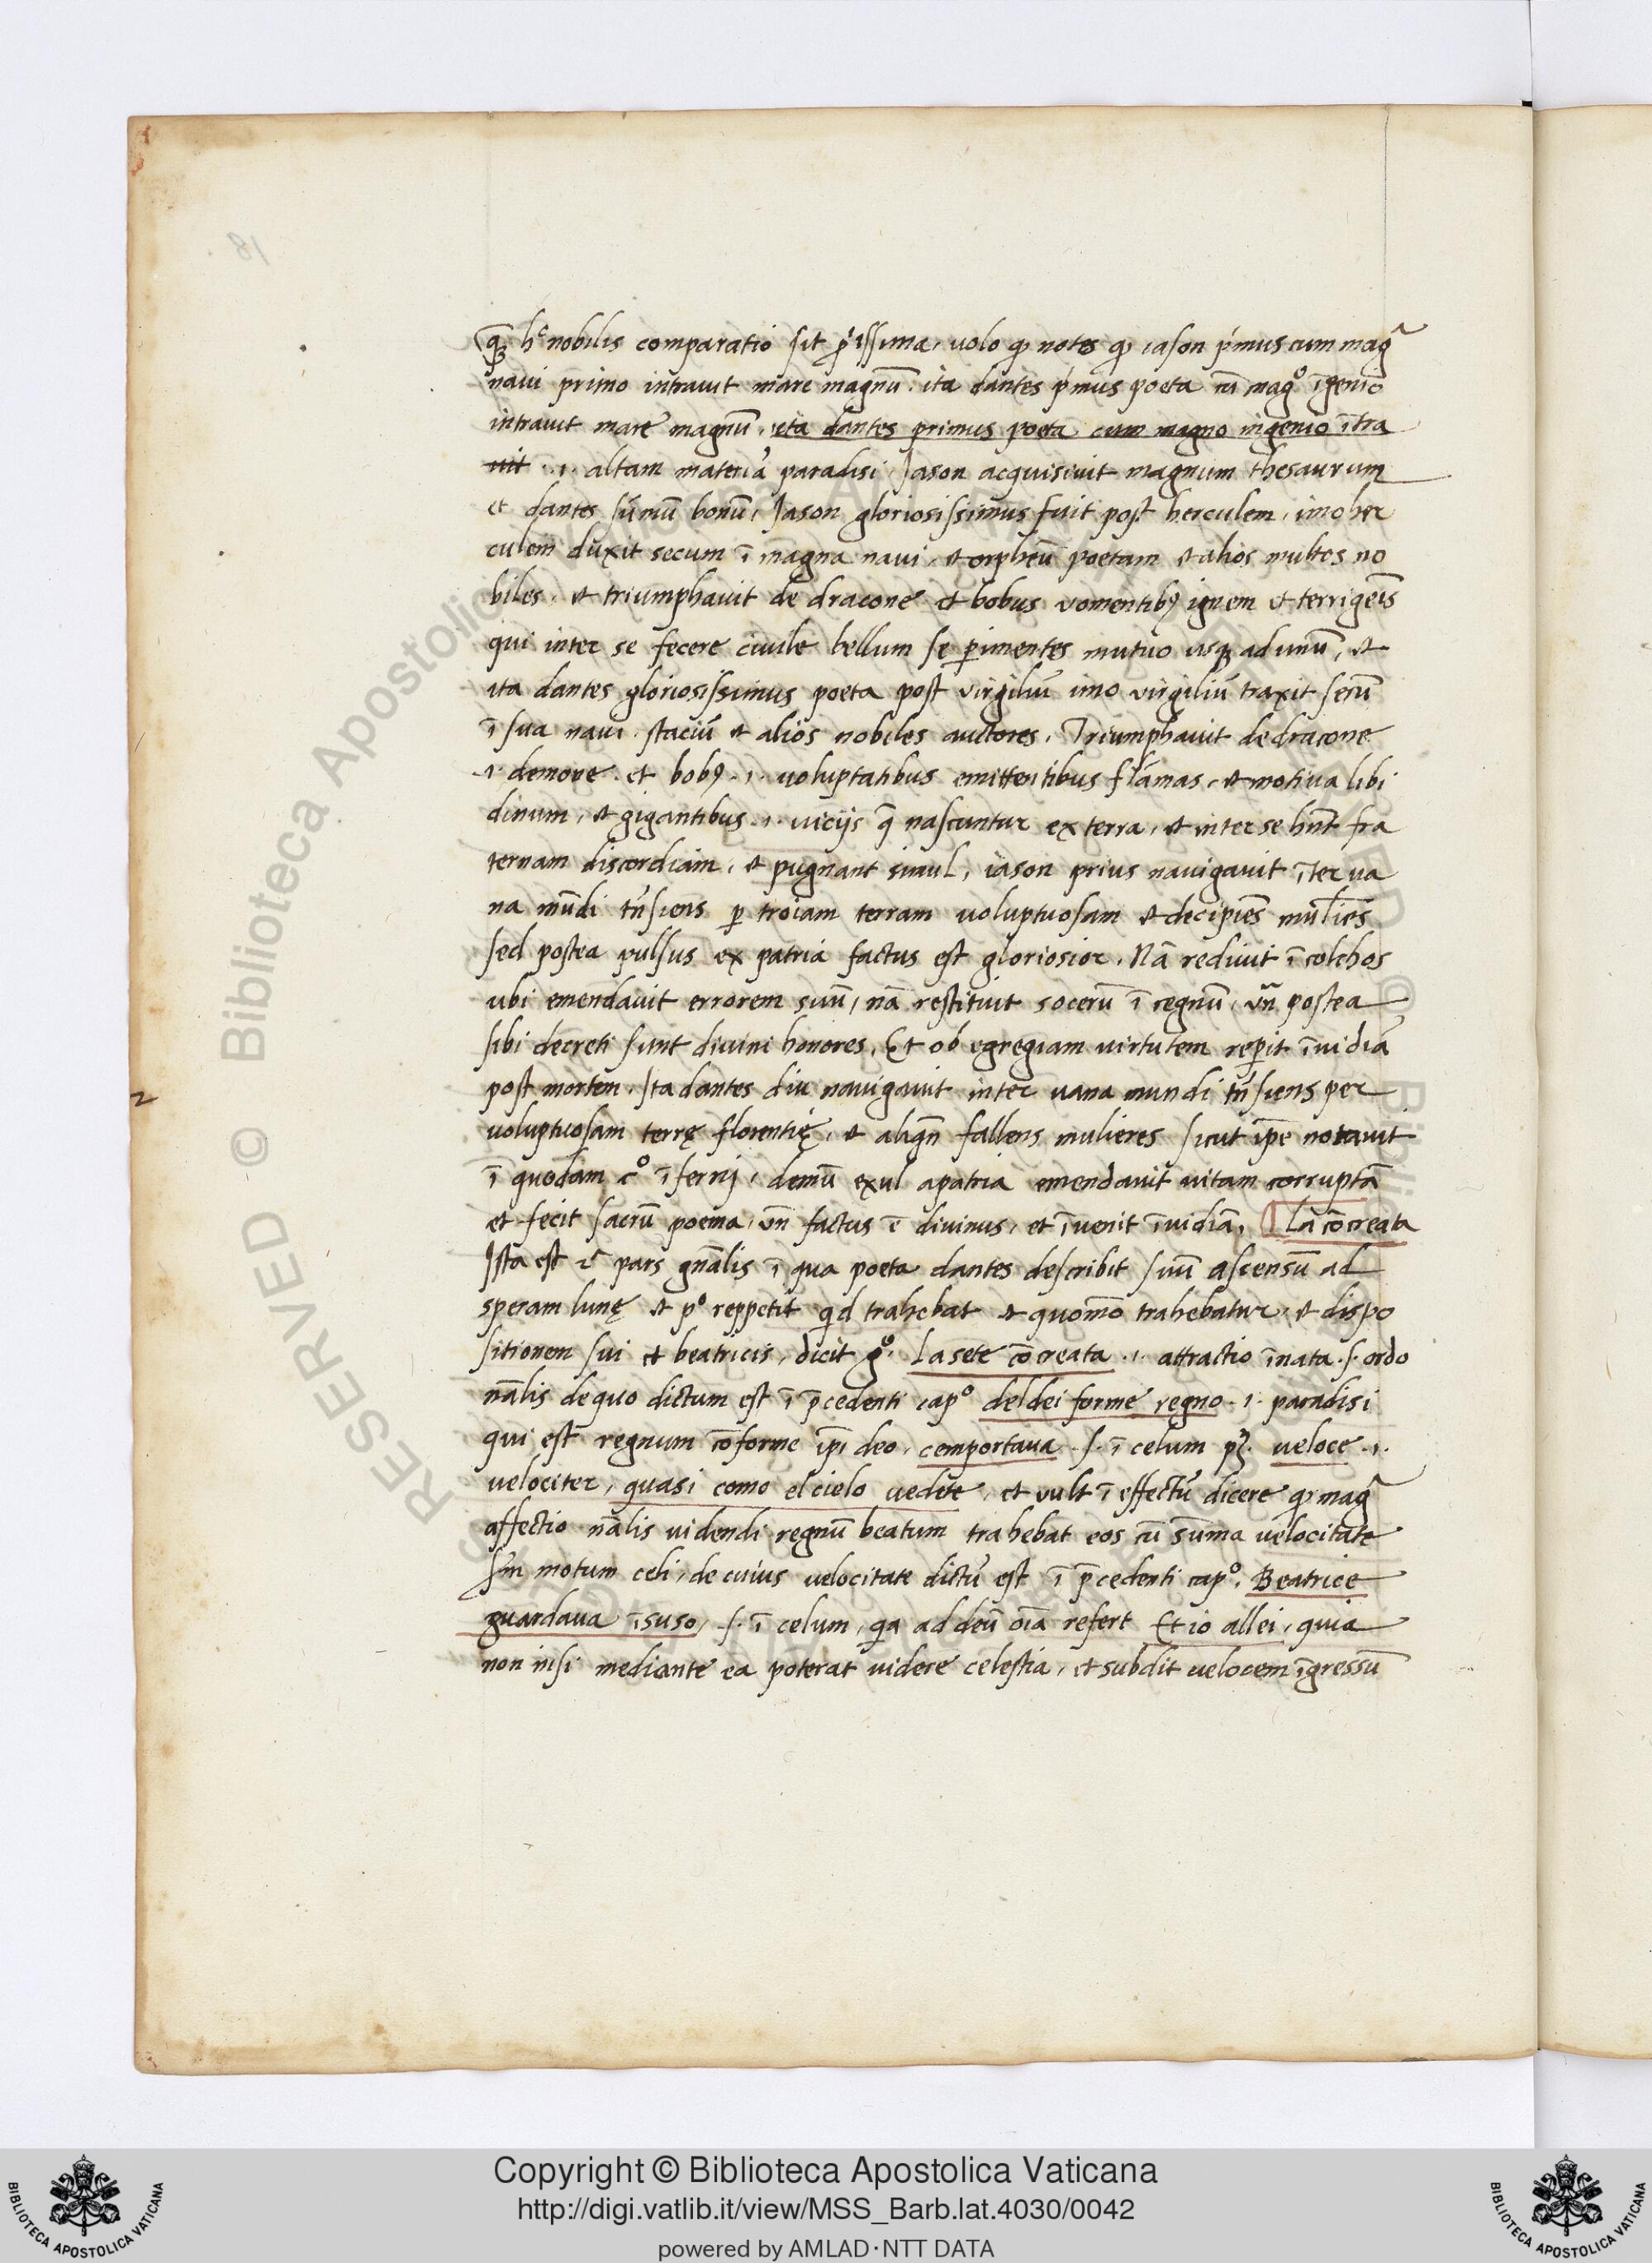 hᶜ nobilis comparatio sit ꝓ' issima, uolo ꝙ notes ꝙ iason pͥmus cum magᵃ
naui primo intrauit mare magnū. ita dantes pͥmus poeta cū magͦ īgenio
intrauit mare magnū, ita dantes primus poeta cum magno ingenio ītra
uit .i. altam materiā paradisi. Jason acquisiuit magnum thesaurum
et dantes sūmū bonū, Jason gloriosissimus fuit post herculem, imo her
culem duxit secum ī magna naui, et orpheū poetam et alios multos no
biles. et triumphauit de dracone et bobus vomentibꝰ ignem et terrigeīs
qui inter se fecere ciuile bellum se ꝑimentes mutuo usqꝫ ad unū, et
ita dantes gloriosissimus poeta post virgiliū imo virgiliū traxit secū
ī sua naui. staciū et alios nobiles auctores. Triumphauit de dracone
.i. demone. et bobꝰ .i. uoluptatibus emittentibus flāmas, et motiua libi
dinum, et gigantibus .i. uicijs q̄ nascuntur ex terra, et inter se hn̄t fra
ternam discordiam, et pugnant simul, iason prius nauigauit īter ua
na mūdi tn̄siens ꝑ troiam terram uoluptuosam et decipiēs mulieēs
sed postea pulsus ex patria factus est gloriosior. Nā rediuit ī colchos
ubi emendauit errorem suū, nā restituit socerū ī regnū, vn̄ postea
sibi decreti sunt diuini honores. Et ob egregiam uirtutem reꝑit īuidiā
post mortem. Ita dantes diu nauigauit inter uana mundi tn̄siens per
uoluptuosam terrę florentię, et aliqn̄ fallens mulieres sicut ip̄e notauit
ī quodam cͦ īferni, demū exul apatria emendauit uitam corruptā
et fecit sacrū poema, vn̄ factus ē diuinus, et īuenit īuidiā. ¶ La cōcreata
Ista est 2ᵃ pars gn̄alis ī qua poeta dantes describit suū ascensū ad
speram lunę et pͦ reppetit qͥd trahebat et quomō trahebatur, et dispo
sitionem sui et beatricis, dicit gͦ. La sete cōcreata .i. attractio īnata .s. ordo
nālis de quo dictum est ī p̄cedenti capͦ del dei forme regno .i. paradisi
qui est regnum cōforme ip̄i deo, cemportaua .s. ī celum pꝫ. ueloce .i.
velociter, quasi como el cielo uedete, et vult ī effectū dicere ꝙ magᵃ
affectio nālis uidendi regnū beatum trahebat eos cū suma uelocitate
sm̄ motum celi, de cuius uelocitate dictū est ī p̄cedenti capͦ. Beatrice
guardaua īsuso, .s. ī celum, qͥa ad deū oīa refert Et io allei, quia
non nisi mediante ea poterat uidere celestia, et subdit uelocem īgressū
RESERVED © Biblioteca Apostolica
Copyright © Biblioteca Apostolica Vaticana
http://digi.vatlib.it/view/MSS_Barb.lat.4030/0042
powered by AMLAD·NTT DATA
BIBLIOTECA APOSTOLICA VATICANA
BIBLIOTECA APOSTOLICA VATICANA